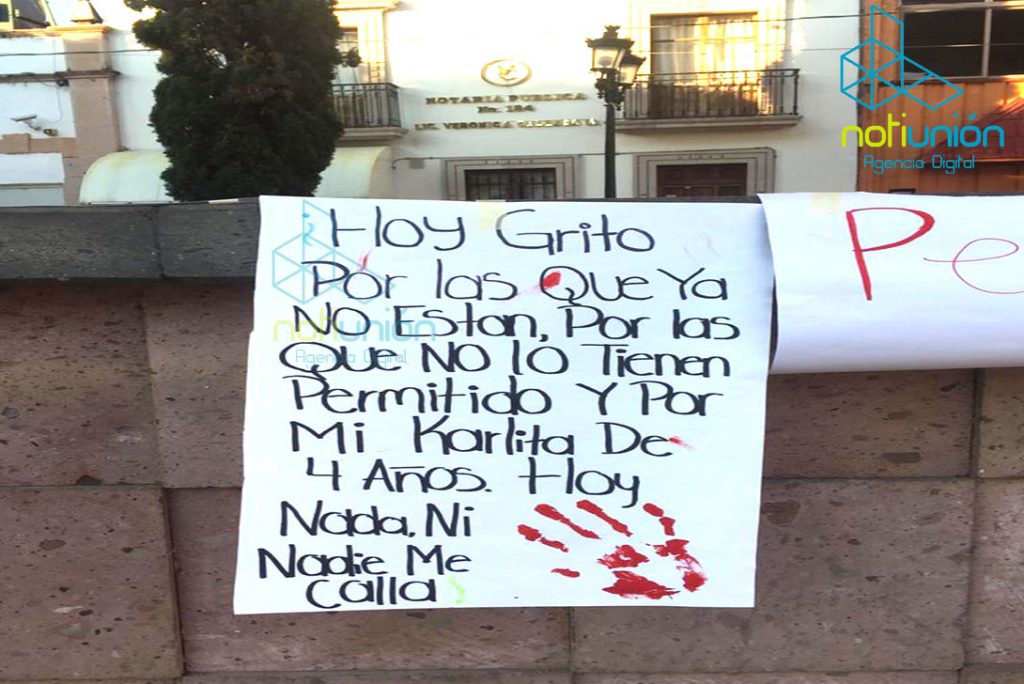 NOTARIA PUBLICA
No. 
LIC. VERONICA
notiunión
Agencia Digital
Hoy Grito
Por las Que Ya
NO Estan, Por las
Que NO lo Tienen
Permitido Y Por
Mi Karlita De
4 Años. Hoy
Nada, Ni
Nadie Me
calla
Pe
notiunión
Agencia Digital